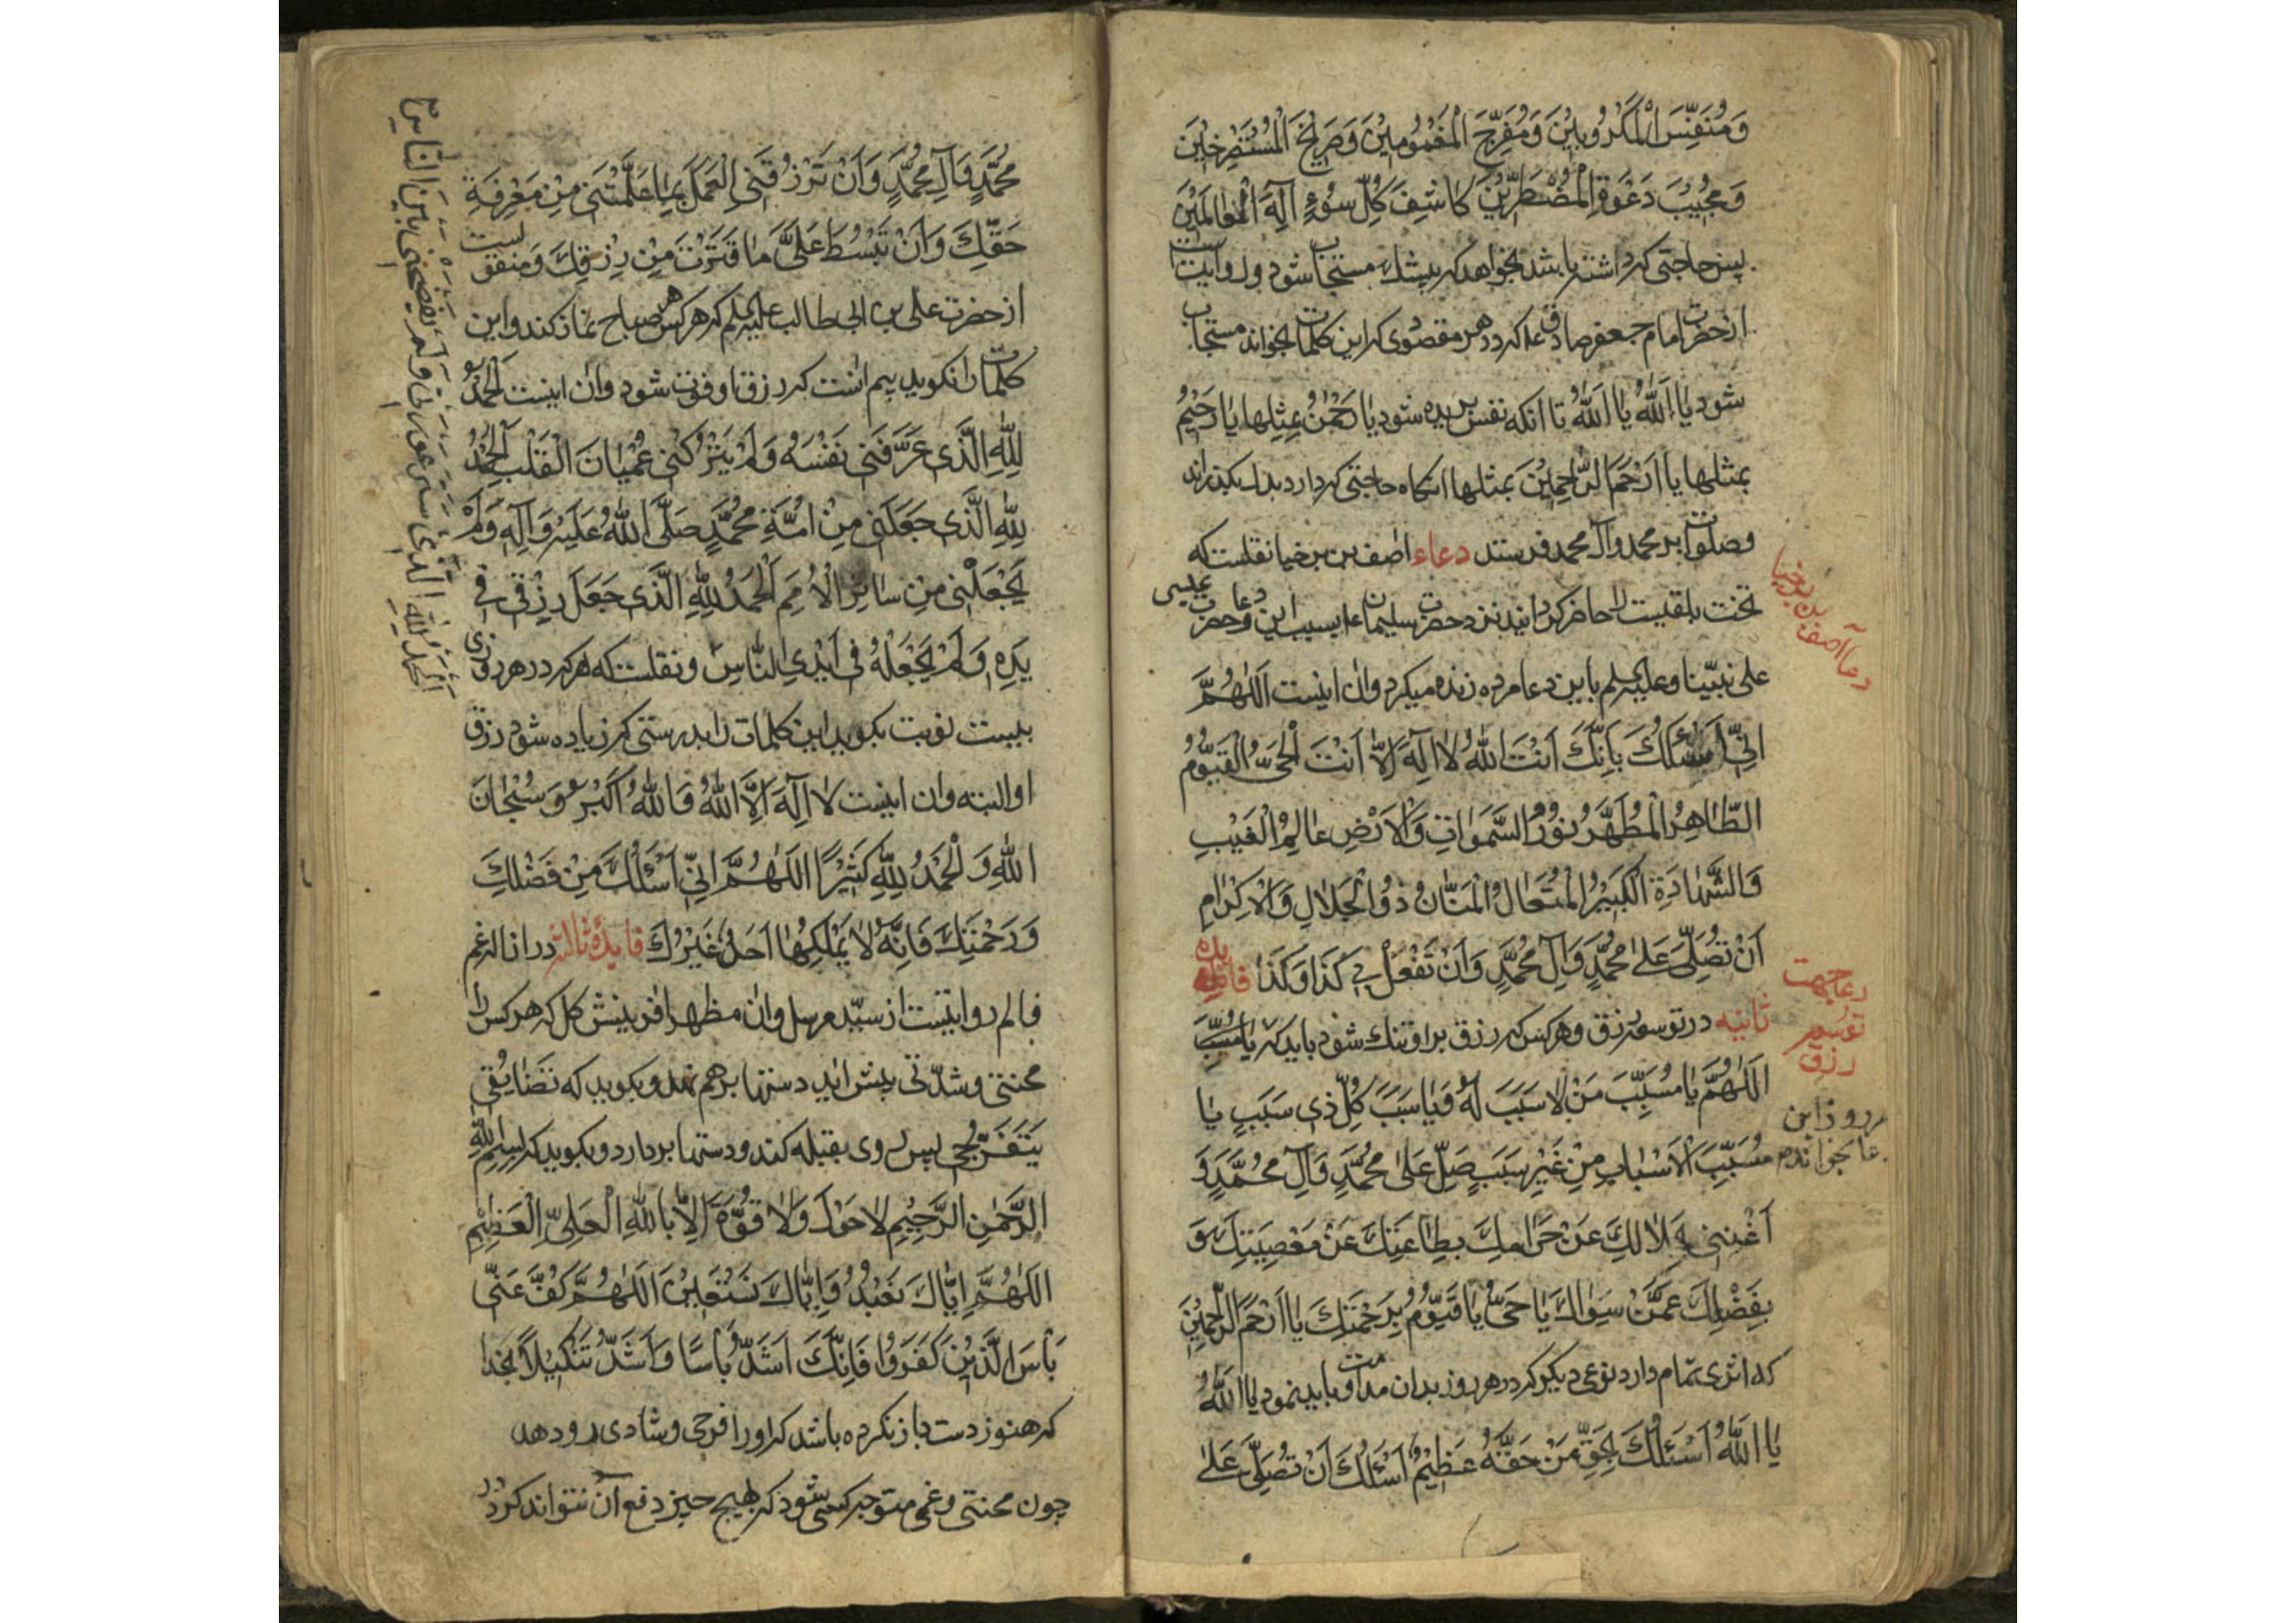 وَمُنَفِّسَ الْمَكْرُوبِيْنَ وَمُفَرِّجَ الْمَغْمُومِيْنَ وَصَرِيْخَ الْمُسْتَصْرِخِيْنَ
وَمُجِيْبَ دَعْوَةِ الْمُضْطَرِّيْنَ كَاشِفَ كُلِّ سُوْءٍ اِلٰهَ الْعٰالَمَيْنَ
پس حاجتی که داشته باشد بخواهد که بیشك مستجاب شود و روایتست
از حضرت امام جعفر صادق ع که در هر مقصودی که این کلمات بخواند مستجاب
شود یٰا اَللّٰهُ یٰا اَللّٰهُ تا انکه نفس بریده شود یٰا رَحْمٰنُ بمِثلِها یٰا رَحیٖمُ
بمثلها یٰا اَرْحَمَ الرّٰاحِمِیْنَ بمثلها انکاه حاجتی که دارد بدل بکذراند
وصلوات بر محمد وآل محمد فرستد دعاء اصف بن برخیا نقلست که
تخت بلقیست را حاضر کردانید نزد حضرت سلیمان ع بسبب این دعا وحضرت عیسی
علی نبیّنا وعلیه السلم باین دعا مرده زنده میکرد وان اینست اَللّٰهُمَّ
اِنّیٖ اَسْئَلُكَ بِاَنَّكَ اَنْتَ اللّٰهُ لٰا اِلٰهَ اِلّٰا اَنْتَ الْحَیُّ الْقَیُّوْمُ
الطّٰاهِرُ الْمُطَهَّرُ نُوْرُ السَّمٰوٰاتِ وَالْاَرْضِ عٰالِمُ الْغَیْبِ
وَالشَّهٰادَةِ الْكَبیْرُ الْمُتَعٰالُ الْمَنّٰانُ ذُوْ الْجَلٰالِ وَالْاِكْرٰامِ
اَنْ تُصَلِّیَ عَلیٰ مُحَمَّدٍ وَآلِ مُحَمَّدٍ وَاَنْ تَفْعَلَ بیٖ كَذٰا وَكَذٰا فایده
ثانیه در توسعه رزق وهرکس که رزق بر او تنك شود باید که یٰا مُسَبِّبَ
اَللّٰهُمَّ یٰا مُسَبِّبَ مَنْ لٰا سَبَبَ لَهُ وَیٰا سَبَبَ كُلِّ ذیٖ سَبَبٍ یٰا
مُسَبِّبَ الْاَسْبٰابِ مِنْ غَیْرِ سَبَبٍ صَلِّ عَلیٰ مُحَمَّدٍ وَآلِ مُحَمَّدٍ وَ
اَغْنِنیٖ بِحَلٰالِكَ عَنْ حَرٰامِكَ بِطٰاعَتِكَ عَنْ مَعْصِیَتِكَ وَ
بِفَضْلِكَ عَمَّنْ سِوٰاكَ یٰا حَیُّ یٰا قَیُّوْمُ بِرَحْمَتِكَ یٰا اَرْحَمَ الرّٰحِمِیْنَ
که اثری تمام دارد نوعی دیکر که در هر روز بدان مداومت باید نمود یٰا اَللّٰهُ
یٰا اَللّٰهُ اَسْئَلُكَ بِحَقِّ مَنْ حَقُّهُ عَظِیْمٌ اَسْئَلُكَ اَنْ تُصَلِّیَ عَلیٰ
دعا آصف بن برخیا
دعا جهت
توسعه
رزق
روز این
بخوانده
مُحَمَّدٍ وَآلِ مُحَمَّدٍ وَاَنْ تَرْزُقَنِیَ الْعَمَلَ بِمٰا عَلَّمْتَنیٖ مِنْ مَعْرِفَةِ
حَقِّكَ وَاَنْ تَبْسُطَ عَلَیَّ مٰا قَتَرْتَ مِنْ رِزْقِكَ ومنقولست
از حضرت علی بن ابی طالب علیه السلم که هرکس هر صباح نماز کند واین
کلمات را نکوید بیم انست که رزق او فوت شود وان اینست اَلْحَمْدُ
لِلّٰهِ الَّذیٖ عَرَّفَنیٖ نَفْسَهُ وَلَمْ یَتْرُكْنیٖ عُمْیٰانَ الْقَلْبِ اَلْحَمْدُ
لِلّٰهِ الَّذیٖ جَعَلَنیٖ مِنْ اُمَّةِ مُحَمَّدٍ صَلَّی اللّٰهُ عَلَیْهِ وَآلِهِ وَلَمْ
یَجْعَلْنیٖ مِنْ سٰائِرِ الْاُمَمِ اَلْحَمْدُ لِلّٰهِ الَّذیٖ جَعَلَ رِزْقیٖ فیٖ
یَدِهِ وَلَمْ یَجْعَلْهُ فیٖ اَیْدِی النّٰاسِ ونقلست که هرکه در هر روزی
بیست نوبت بکوید این کلمات را بدرستی که زیاده شود رزق
او البته وان اینست لٰا اِلٰهَ اِلَّا اللّٰهُ وَاللّٰهُ اَكْبَرُ وَسُبْحٰانَ
اللّٰهِ وَالْحَمْدُ لِلّٰهِ كَثیْرًا اَللّٰهُمَّ اِنّیٖ اَسْئَلُكَ مِنْ فَضْلِكَ
وَرَحْمَتِكَ فَاِنَّهُ لٰا یَمْلِكُهٰا اَحَدٌ غَیْرُكَ فایدهٔ ثالثه در ازاله غم
والم روایتست از سیّد مرسل وان مظهر افرینش کل که هر کس را
محنتی وشدّتی پیش اید دستها برهم نهد وبکوید که تَضٰایُقیٖ
یَتَفَرَّجیٖ پس روی بقبله کند ودستها بردارد وبکوید که بِسْمِ اللّٰهِ
الرَّحْمٰنِ الرَّحِیْمِ لٰا حَوْلَ وَلٰا قُوَّةَ اِلّٰا بِاللّٰهِ الْعَلِیِّ الْعَظِیْمِ
اَللّٰهُمَّ اِیّٰاكَ نَعْبُدُ وَاِیّٰاكَ نَسْتَعِیْنُ اَللّٰهُمَّ كُفَّ عَنّیٖ
بَأْسَ الَّذِیْنَ كَفَرُوْا فَاِنَّكَ اَشَدُّ بَأْسًا وَاَشَدُّ تَنْكِیْلًا بخدا
که هنوز دست باز نکرده باشد که او را فرحی وشادی رو دهد
چون محنتی وغمی متوجه کسی شود که بهیچ چیز دفع آن نتواند کرد
اَلْحَمْدُ لِلّٰهِ الَّذیٖ سَتَرَ عَوْرَتیٖ وَلَمْ یَفْضَحْنیٖ بَیْنَ النّٰاسِ